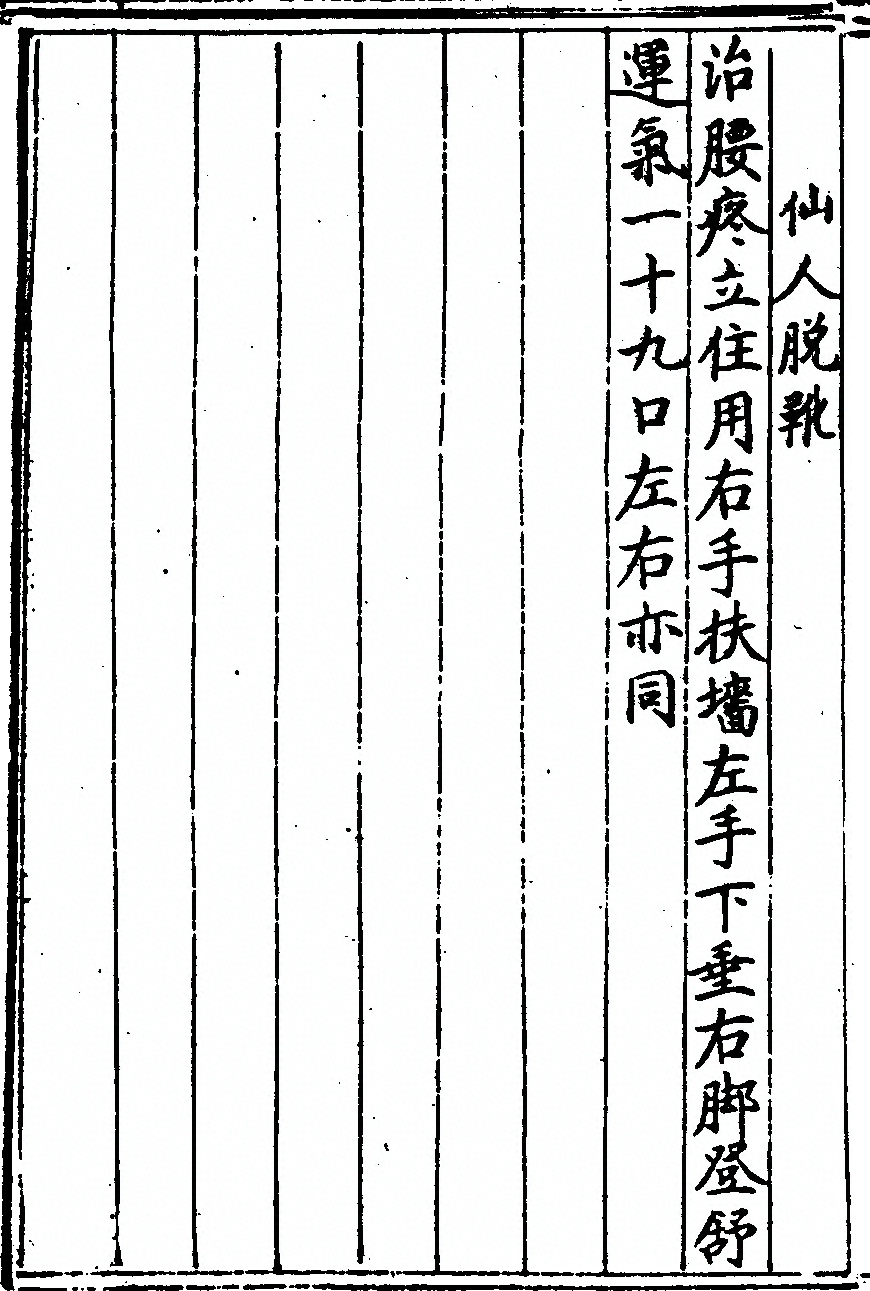 仙人脱靴
治腰疼立住用右手扶墻左手下垂右脚登舒
運氣一十九口左右亦同